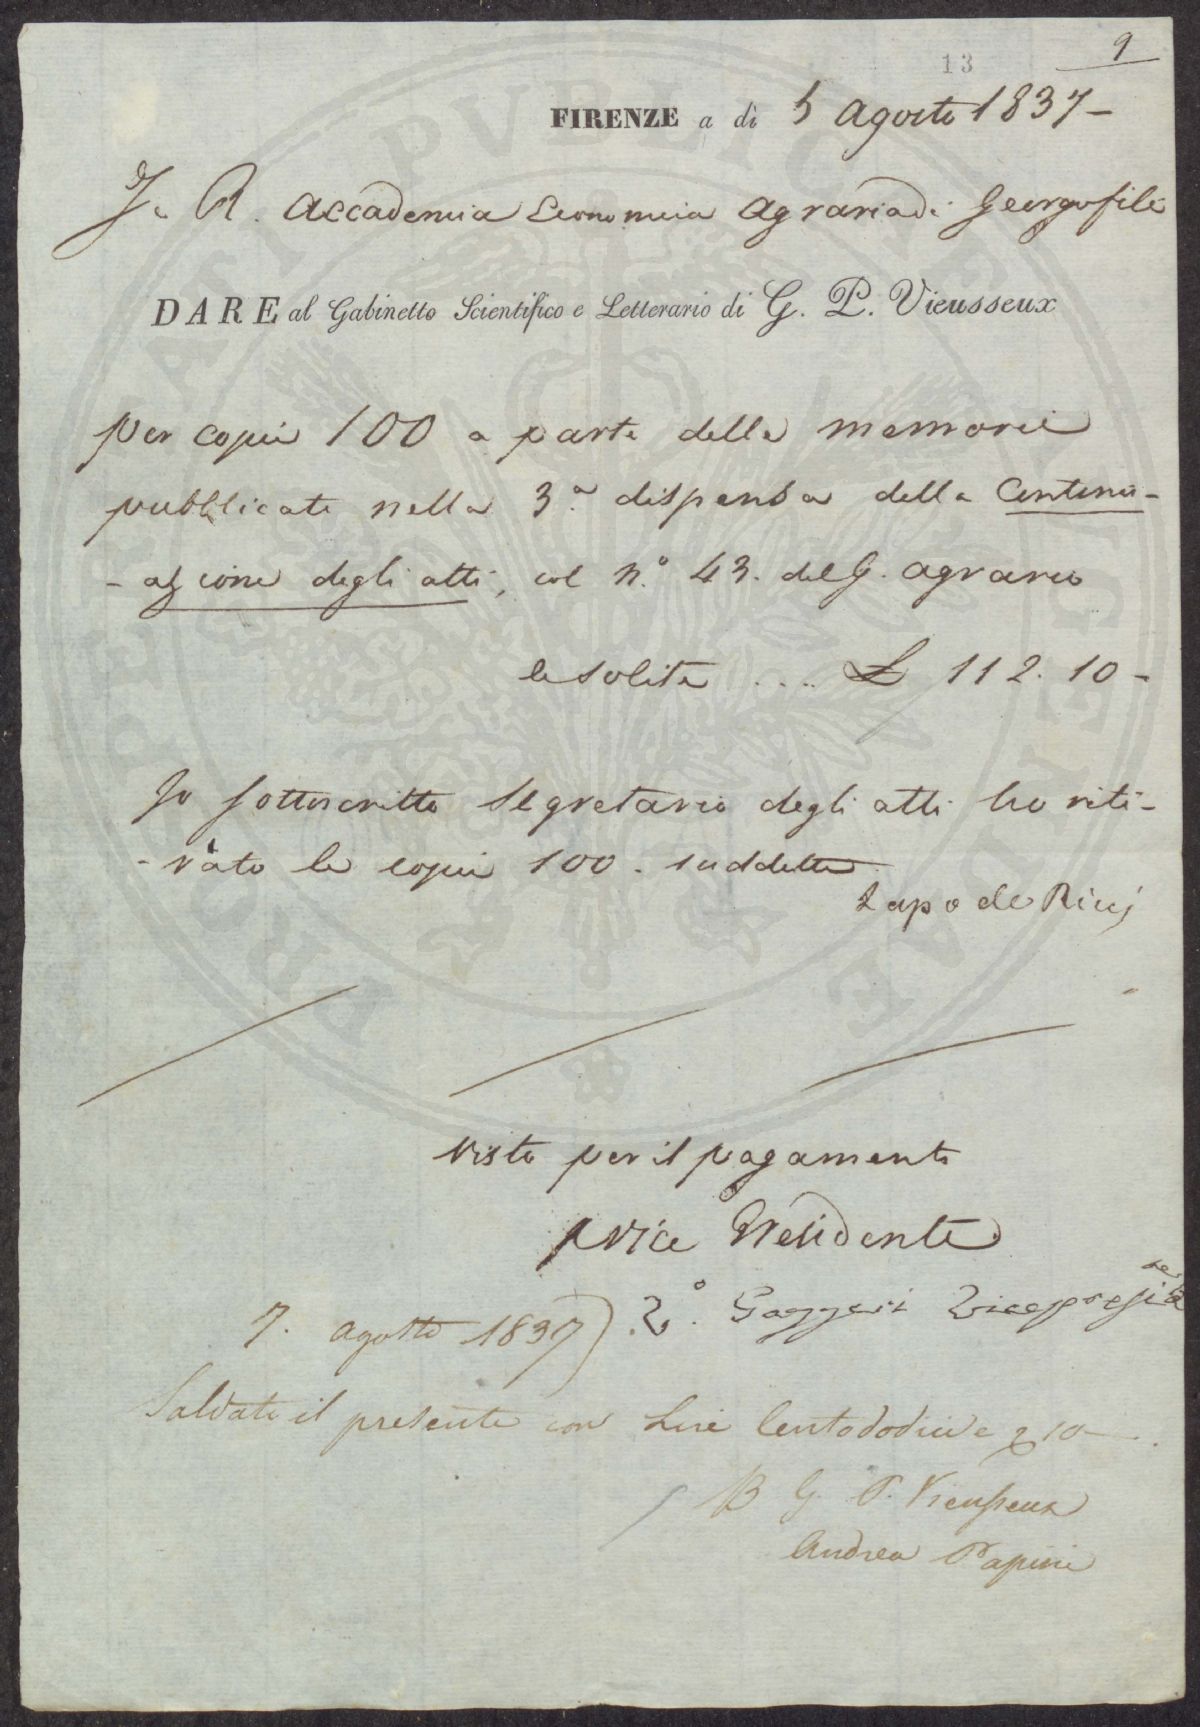 9
13
FIRENZE a dì 5 Agosto 1837 -
I. R. Accademia Economica Agraria di Georgofili
DARE al Gabinetto Scientifico e Letterario di G. P. Vieusseux
per copie 100 a parte delle memorie
pubblicate nella 3.a dispensa della Continu-
- azione degli atti, col n.o 43. del G. agrario
le solite .... £ 112. 10 -
Io sottoscritto Segretario degli atti ho riti-
- rato le copie 100. suddette
Lapo de Ricci
Visto per il pagamento
Vice Presidente
Gazzeri Vicepresidente
7. Agosto 1837
Saldato il presente con Lire Centododici e 10
G. P. Vieusseux
Andrea Papini